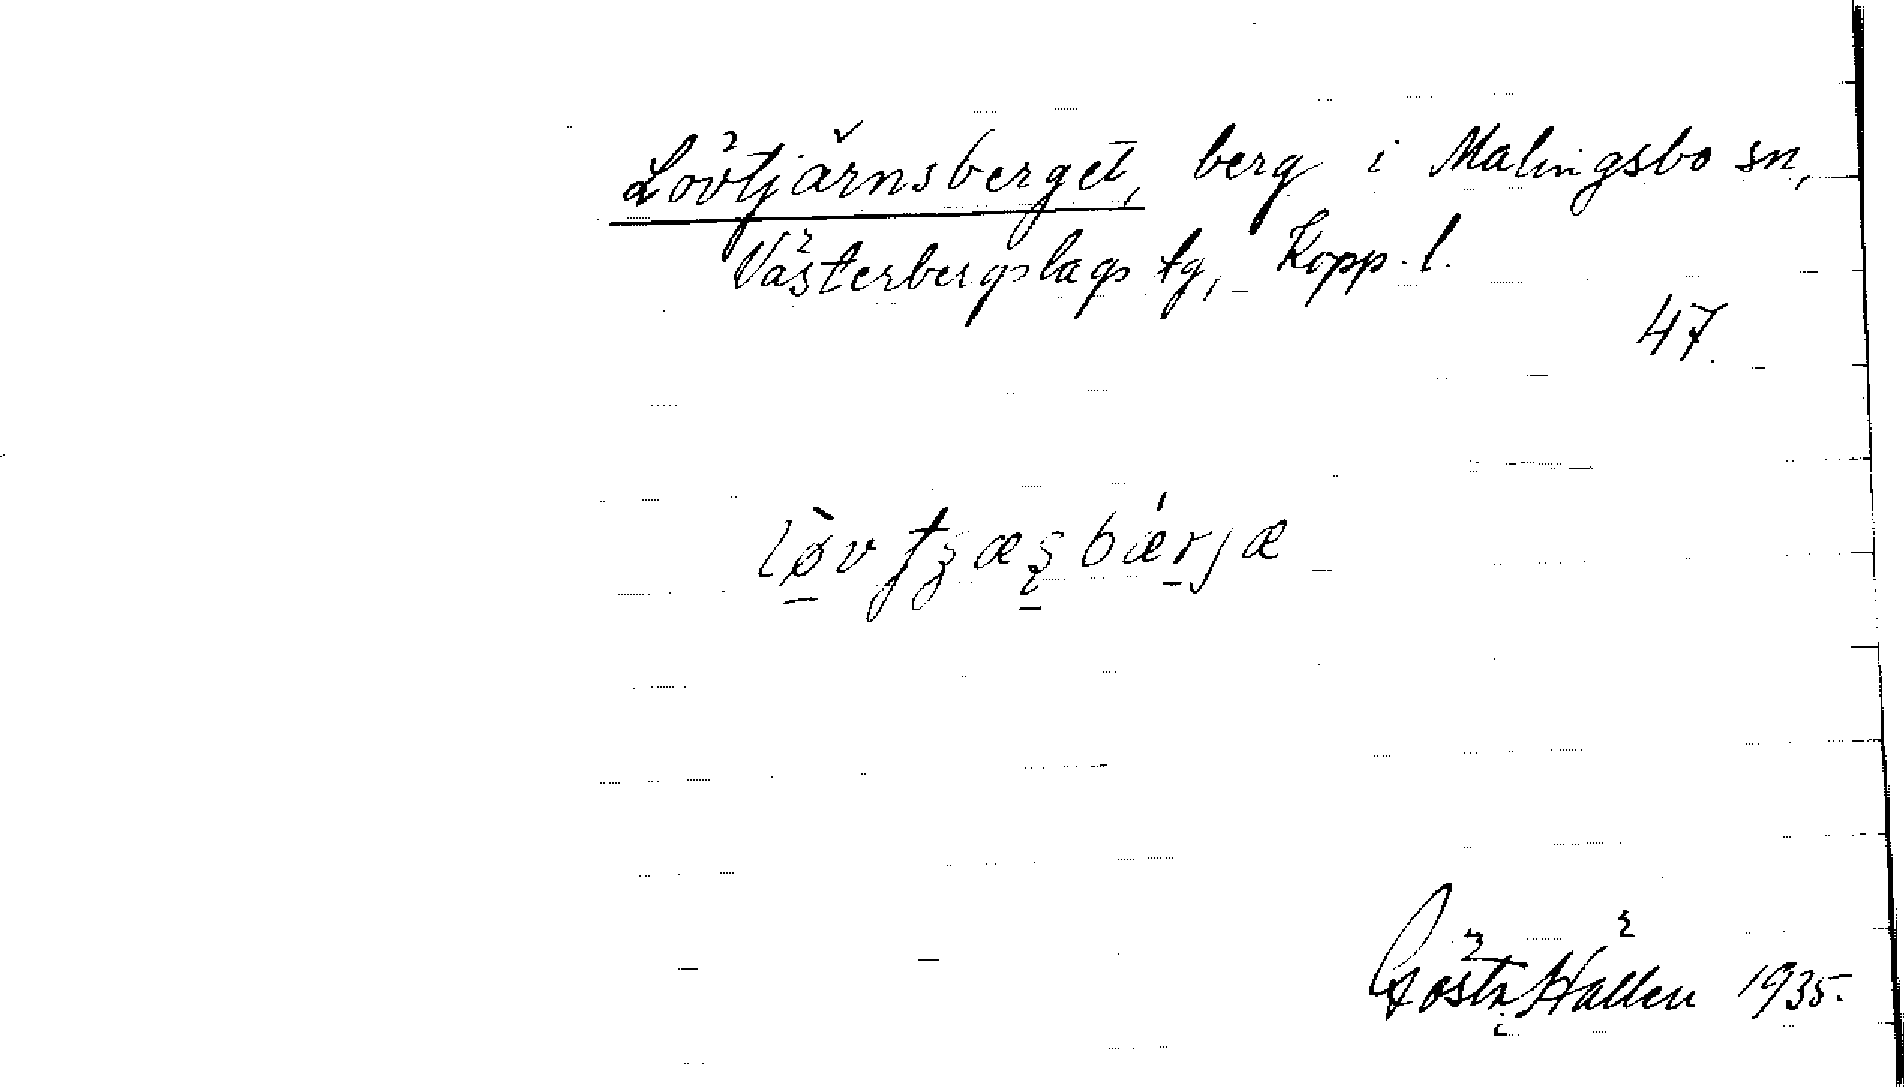 Lövtjärnsberget, berg i Malingsbo sn,
Västerbergslags tg, Kopp. l.
47.
Gösta Hållen 1935.